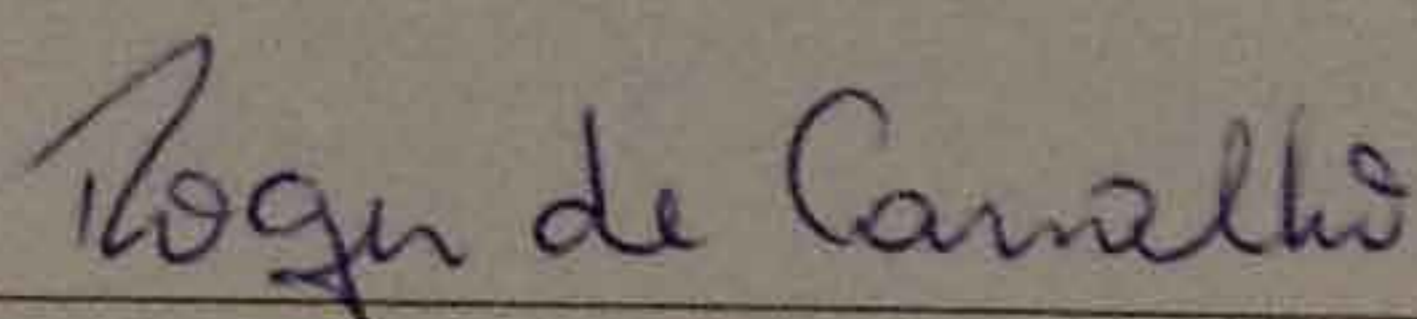 Roger de Carvalho